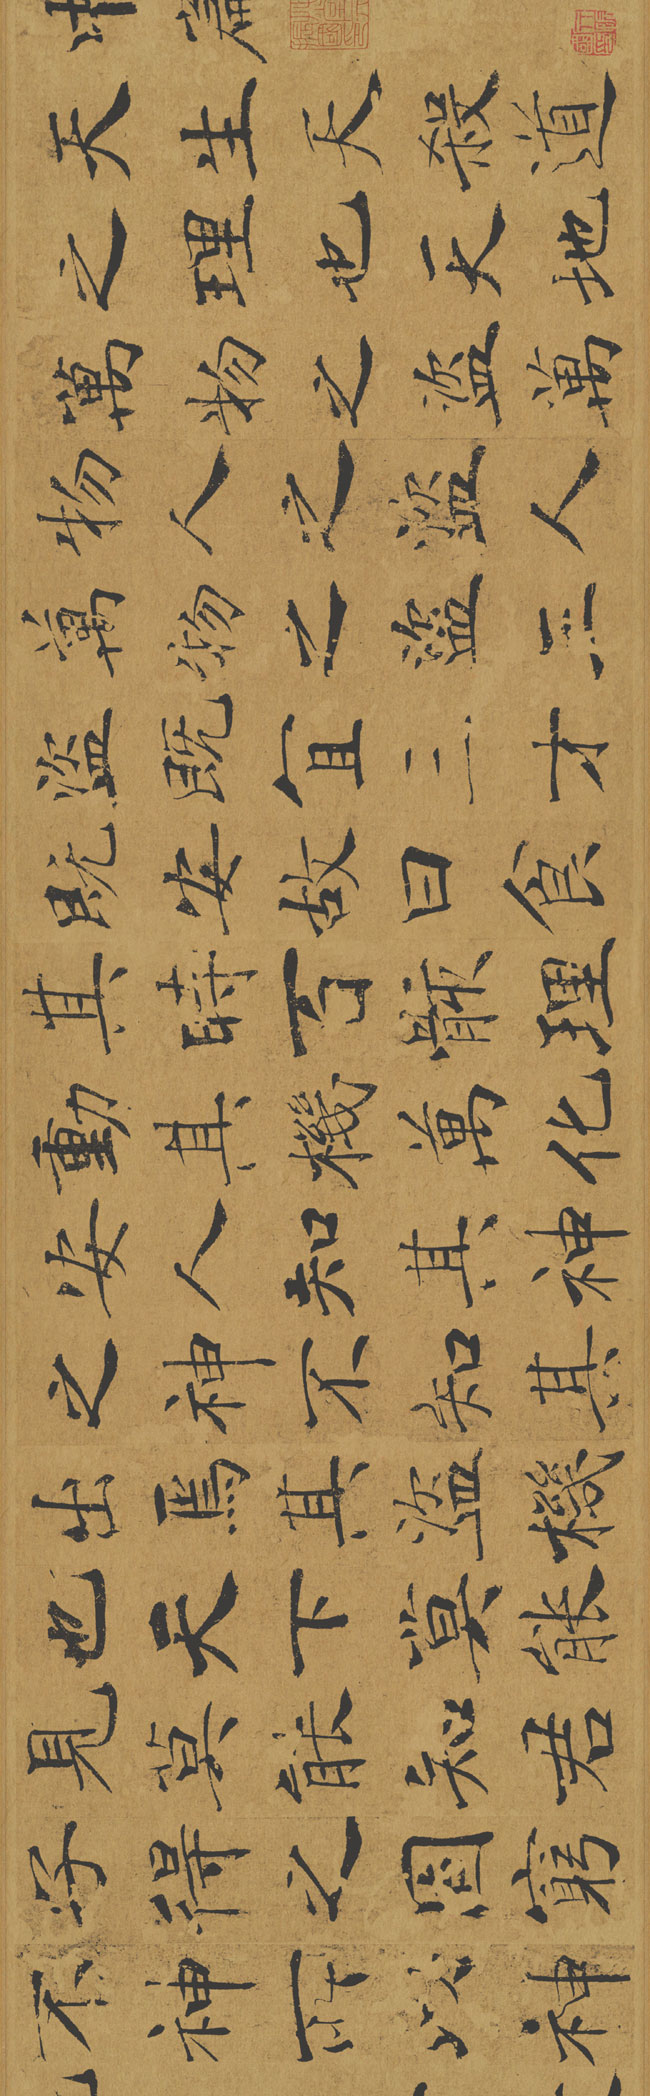 中篇
天生天殺道
之理也天地
萬物之盜萬
物人之盜人
萬物之盜三
盜既宜三才
既安故曰食
其時百骸理
動其機萬化
安人知其神
之神不知其
出焉其盜機
也天下莫能
見莫能知君
子得之固窮
不神所以神